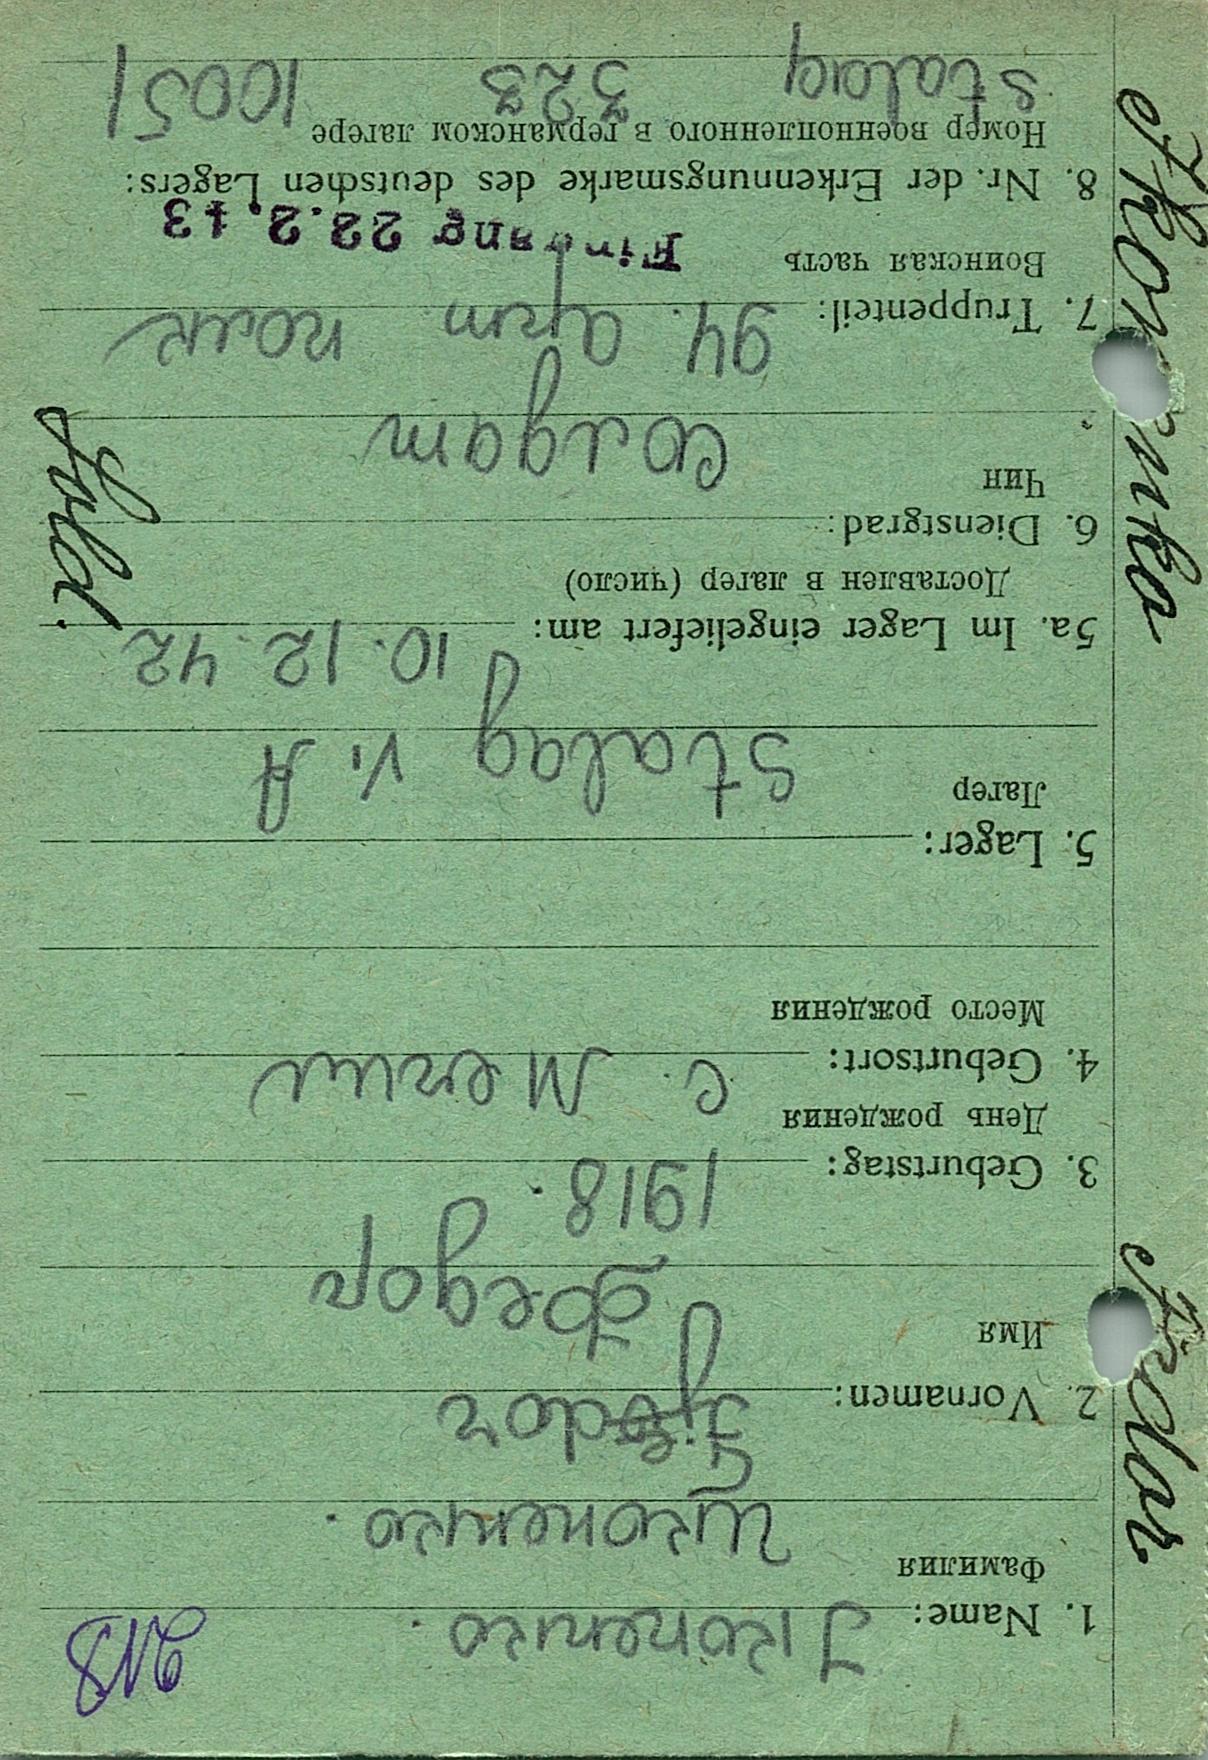 1. Name: Ikonenko.
Фамилия Иконенко.
2. Vornamen: Fjodor
Имя Федор
3. Geburtstag: 1918.
День рождения
4. Geburtsort: с. Мегли
Место рождения
5. Lager:
Лагер Stalag V. A
5a. Im Lager eingeliefert am: 10. 12. 42
Доставлен в лагер (число)
6. Dienstgrad:
Чин Солдат
Sold.
7. Truppenteil: 94. арт полк
Воинская часть Eingang 22.2.43
8. Nr. der Erkennungsmarke des deutschen Lagers:
Номер военнопленного в германском лагере
Stalag 323 10051
Fedor